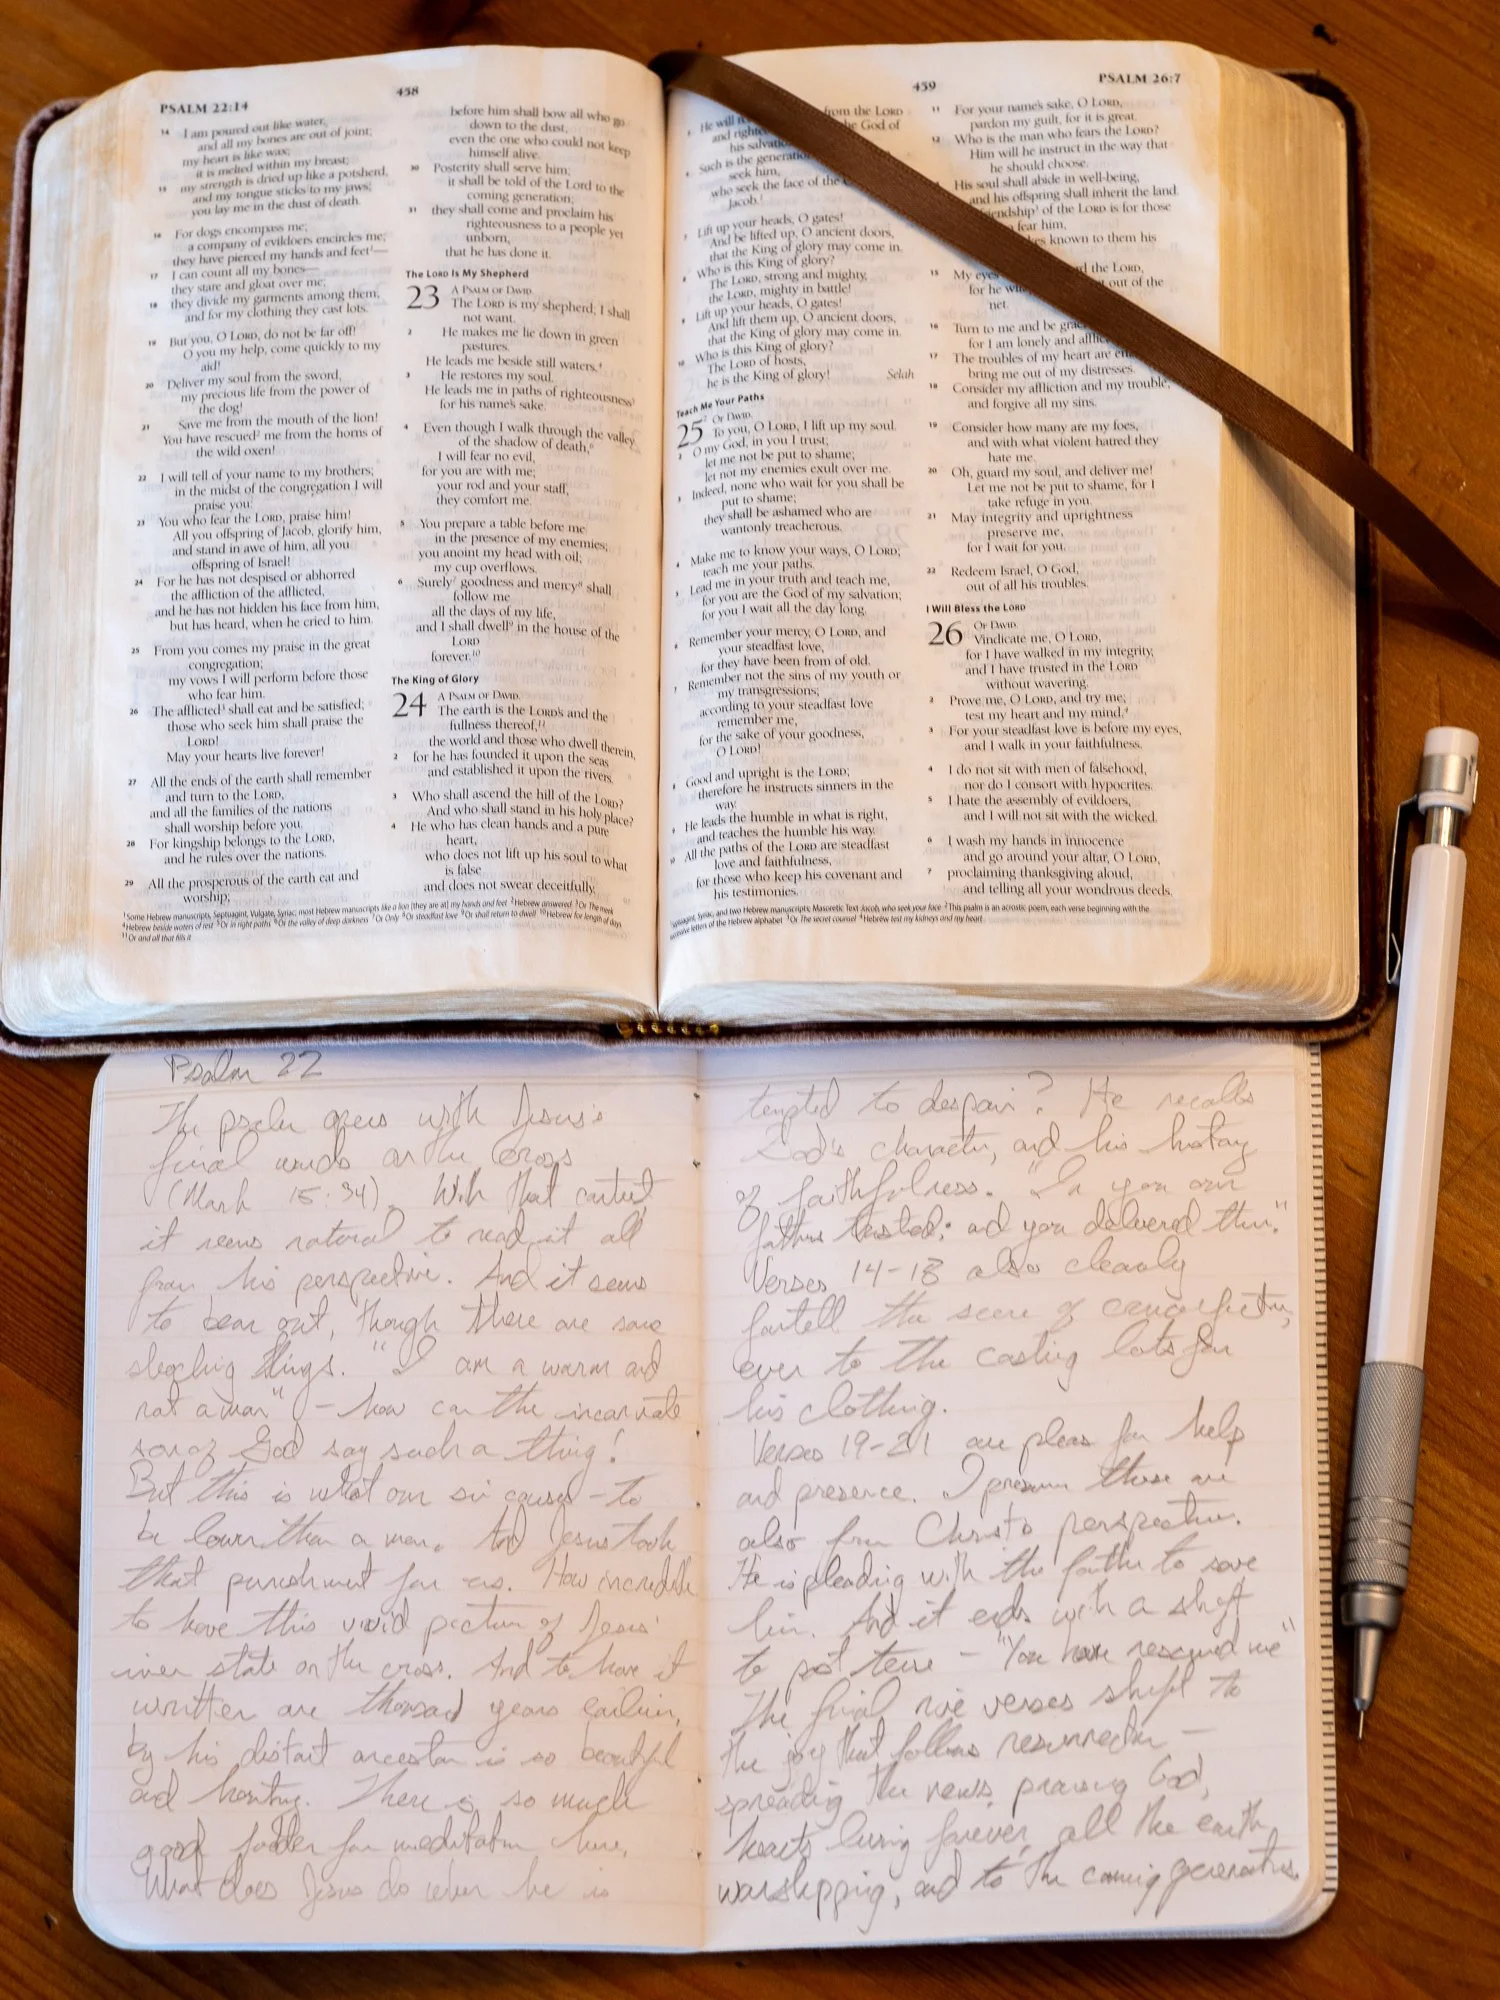 PSALM 22:14
458
14 I am poured out like water,
and all my bones are out of joint;
my heart is like wax;
it is melted within my breast;
15 my strength is dried up like a potsherd,
and my tongue sticks to my jaws;
you lay me in the dust of death.
16 For dogs encompass me;
a company of evildoers encircles me;
they have pierced my hands and feet¹—
17 I can count all my bones—
they stare and gloat over me;
18 they divide my garments among them,
and for my clothing they cast lots.
19 But you, O LORD, do not be far off!
O you my help, come quickly to my
aid!
20 Deliver my soul from the sword,
my precious life from the power of
the dog!
21 Save me from the mouth of the lion!
You have rescued² me from the horns of
the wild oxen!
22 I will tell of your name to my brothers;
in the midst of the congregation I will
praise you:
23 You who fear the LORD, praise him!
All you offspring of Jacob, glorify him,
and stand in awe of him, all you
offspring of Israel!
24 For he has not despised or abhorred
the affliction of the afflicted,
and he has not hidden his face from him,
but has heard, when he cried to him.
25 From you comes my praise in the great
congregation;
my vows I will perform before those
who fear him.
26 The afflicted³ shall eat and be satisfied;
those who seek him shall praise the
LORD!
May your hearts live forever!
27 All the ends of the earth shall remember
and turn to the LORD,
and all the families of the nations
shall worship before you.
28 For kingship belongs to the LORD,
and he rules over the nations.
29 All the prosperous of the earth eat and
worship;
before him shall bow all who go
down to the dust,
even the one who could not keep
himself alive.
30 Posterity shall serve him;
it shall be told of the Lord to the
coming generation;
31 they shall come and proclaim his
righteousness to a people yet
unborn,
that he has done it.
The LORD Is My Shepherd
23 A PSALM OF DAVID.
The LORD is my shepherd; I shall
not want.
2 He makes me lie down in green
pastures.
He leads me beside still waters.⁴
3 He restores my soul.
He leads me in paths of righteousness⁵
for his name's sake.
4 Even though I walk through the valley
of the shadow of death,⁶
I will fear no evil,
for you are with me;
your rod and your staff,
they comfort me.
5 You prepare a table before me
in the presence of my enemies;
you anoint my head with oil;
my cup overflows.
6 Surely⁷ goodness and mercy⁸ shall
follow me
all the days of my life,
and I shall dwell⁹ in the house of the
LORD
forever.¹⁰
The King of Glory
24 A PSALM OF DAVID.
The earth is the LORD's and the
fullness thereof,¹¹
the world and those who dwell therein,
2 for he has founded it upon the seas
and established it upon the rivers.
3 Who shall ascend the hill of the LORD?
And who shall stand in his holy place?
4 He who has clean hands and a pure
heart,
who does not lift up his soul to what
is false
and does not swear deceitfully.
¹Some Hebrew manuscripts, Septuagint, Vulgate, Syriac; most Hebrew manuscripts like a lion [they are at] my hands and feet ²Hebrew answered ³Or The meek
⁴Hebrew beside waters of rest ⁵Or in right paths ⁶Or the valley of deep darkness ⁷Or Only ⁸Or steadfast love ⁹Or shall return to dwell ¹⁰Hebrew for length of days
¹¹Or and all that fills it
459
PSALM 26:7
5 He will
from the LORD
and righ
the God of
his salvatio
6 Such is the generatio
seek him,
who seek the face of the
Jacob.¹
7 Lift up your heads, O gates!
And be lifted up, O ancient doors,
that the King of glory may come in.
8 Who is this King of glory?
The LORD, strong and mighty,
the LORD, mighty in battle!
9 Lift up your heads, O gates!
And lift them up, O ancient doors,
that the King of glory may come in.
10 Who is this King of glory?
The LORD of hosts,
he is the King of glory! Selah
Teach Me Your Paths
25² OF DAVID.
To you, O LORD, I lift up my soul.
2 O my God, in you I trust;
let me not be put to shame;
let not my enemies exult over me.
3 Indeed, none who wait for you shall be
put to shame;
they shall be ashamed who are
wantonly treacherous.
4 Make me to know your ways, O LORD;
teach me your paths.
5 Lead me in your truth and teach me,
for you are the God of my salvation;
for you I wait all the day long.
6 Remember your mercy, O LORD, and
your steadfast love,
for they have been from of old.
7 Remember not the sins of my youth or
my transgressions;
according to your steadfast love
remember me,
for the sake of your goodness,
O LORD!
8 Good and upright is the LORD;
therefore he instructs sinners in the
way.
9 He leads the humble in what is right,
and teaches the humble his way.
10 All the paths of the LORD are steadfast
love and faithfulness,
for those who keep his covenant and
his testimonies.
11 For your name's sake, O LORD,
pardon my guilt, for it is great.
12 Who is the man who fears the LORD?
Him will he instruct in the way that
he should choose.
His soul shall abide in well-being,
and his offspring shall inherit the land.
friendship³ of the LORD is for those
fear him,
known to them his
15 My eyes
the LORD,
for he wi
out of the
net.
16 Turn to me and be
for I am lonely and
17 The troubles of my heart are
bring me out of my distresses.
18 Consider my affliction and my trouble,
and forgive all my sins.
19 Consider how many are my foes,
and with what violent hatred they
hate me.
20 Oh, guard my soul, and deliver me!
Let me not be put to shame, for I
take refuge in you.
21 May integrity and uprightness
preserve me,
for I wait for you.
22 Redeem Israel, O God,
out of all his troubles.
I Will Bless the LORD
26 OF DAVID.
Vindicate me, O LORD,
for I have walked in my integrity,
and I have trusted in the LORD
without wavering.
2 Prove me, O LORD, and try me;
test my heart and my mind.⁴
3 For your steadfast love is before my eyes,
and I walk in your faithfulness.
4 I do not sit with men of falsehood,
nor do I consort with hypocrites.
5 I hate the assembly of evildoers,
and I will not sit with the wicked.
6 I wash my hands in innocence
and go around your altar, O LORD,
7 proclaiming thanksgiving aloud,
and telling all your wondrous deeds.
¹Septuagint, Syriac, and two Hebrew manuscripts; Masoretic Text Jacob, who seek your face ²This psalm is an acrostic poem, each verse beginning with the
successive letters of the Hebrew alphabet ³Or The secret counsel ⁴Hebrew test my kidneys and my heart
Psalm 22
The psalm opens with Jesus's
final words on the cross
(Mark 15:34). With that context,
it seems natural to read it all
from his perspective. And it seems
to bear out, though there are some
shocking things. "I am a worm and
not a man" - how can the incarnate
son of God say such a thing!
But this is what our sin causes - to
be lower than a man. And Jesus took
that punishment for us. How incredible
to have this vivid picture of Jesus'
inner state on the cross. And to have it
written one thousand years earlier,
by his distant ancestor is so beautiful
and haunting. There is so much
good fodder for meditation here.
What does Jesus do when he is
tempted to despair? He recalls
God's character, and his history
of faithfulness. "In you our
fathers trusted; and you delivered them."
Verses 14-18 also clearly
foretell the scene of crucifixion,
even to the casting lots for
his clothing.
Verses 19-21 are pleas for help
and presence. I presume these are
also from Christ's perspective.
He is pleading with the father to save
him. And it ends with a shift
to past tense - "You have rescued me"
The final nine verses shift to
the joy that follows resurrection -
spreading the news, praising God,
hearts living forever, all the earth
worshipping, and to the coming generations.